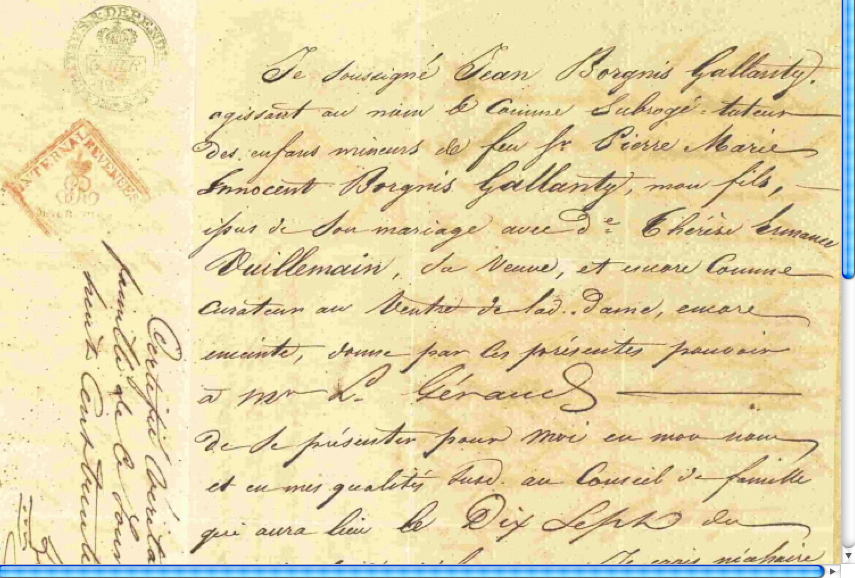 Je soussigné Jean Borgnis Gallanty,
agissant au nom & comme Subrogé-tuteur
des enfans mineurs de feu Sr. Pierre Marie
Innocent Borgnis Gallanty, mon fils,
issus de son mariage avec de. Thérèse Ermance
Vuillemain, sa Veuve, et encore comme
curateur au Ventre de lad. Dame, encore
enceinte, donne par ces présentes pouvoir
à Mr. L. Géraud
de se présenter pour moi en mon nom
et en mes qualités susd. au Conseil de famille
qui aura lieu le Dix Sept du
INTERNAL REVENUES
Certifié vérita
famille de ce Jour
huit Cent trente